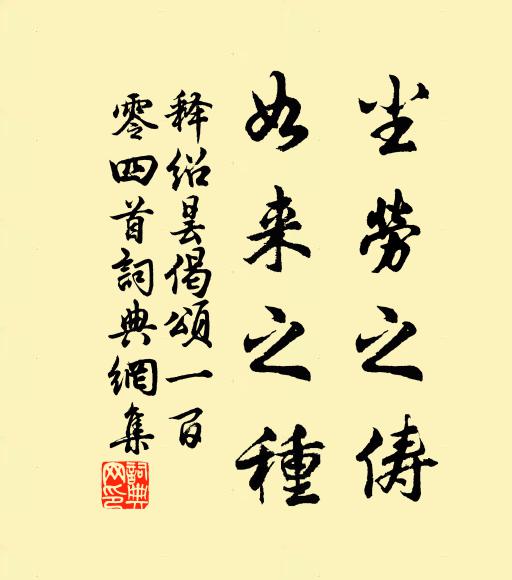 尘劳之俦
如来之种
释绍昙偈颂一百
零四首詞典網集
詞典网印